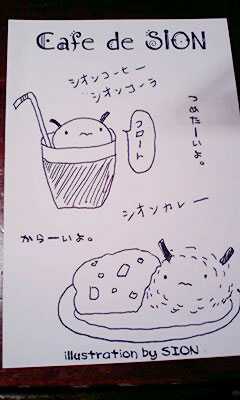 Cafe de SION
シオンコーヒー
シオンコーラ
フロート
つめたーいよ。
シオンカレー
からーいよ。
illustration by SION